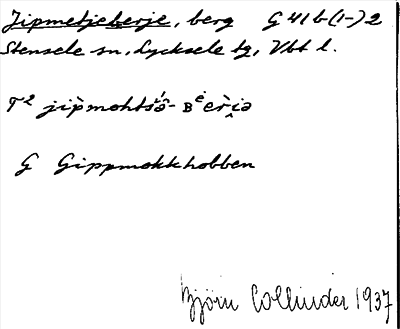 Jipmetjeberje, berg G 41 b (1-) 2
Stensele sn, Lycksele tg, Vbt l.
G Gippmokkhobben
Björn Collinder 1937